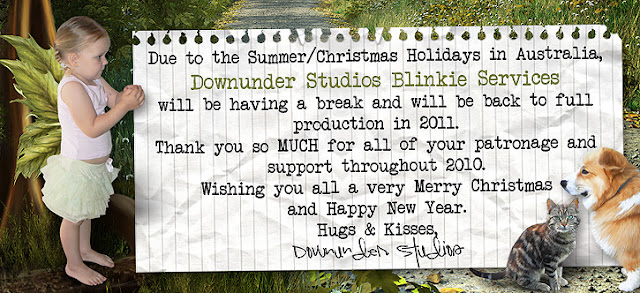 Due to the Summer/Christmas Holidays in Australia,
Downunder Studios Blinkie Services
will be having a break and will be back to full
production in 2011.
Thank you so MUCH for all of your patronage and
support throughout 2010.
Wishing you all a very Merry Christmas
and Happy New Year.
Hugs & Kisses,
Downunder Studios